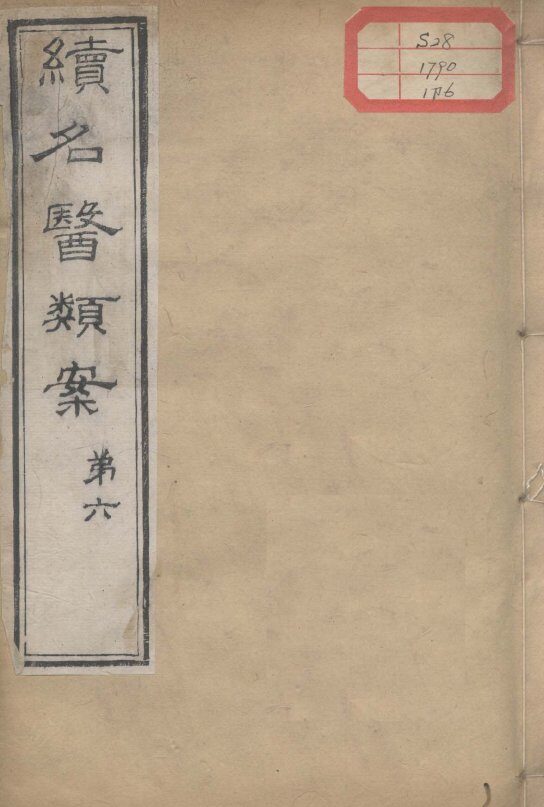 續名醫類案
第六
528
1790
1刊6